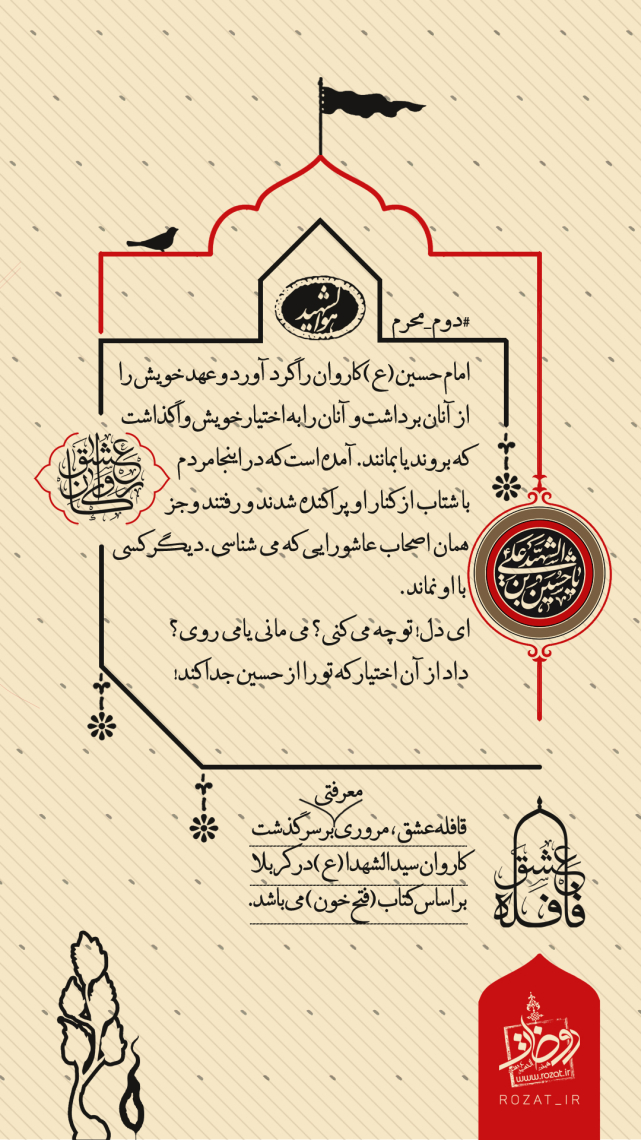 هوالشهید
#دوم_محرم
امام حسین(ع)کاروان را گرد آورد و عهد خویش را
از آنان برداشت و آنان را به اختیار خویش واگذاشت
که بروند یا بمانند. آمده است که در اینجا مردم
با شتاب از کنار او پراکنده شدند و رفتند و جز
همان اصحاب عاشورایی که می شناسی. دیگر کسی
با او نماند.
ای دل؛ تو چه می کنی؟ می مانی یا می روی؟
داد از آن اختیار که تو را از حسین جدا کند!
کاروان عشق
یا حسین بن علی الشهید
معرفتی
قافله عشق، مروری بر سرگذشت
کاروان سیدالشهدا(ع) در کربلا
بر اساس کتاب (فتح خون) می باشد.
قافله عشق
روضات
www.rozat.ir
ROZAT_IR